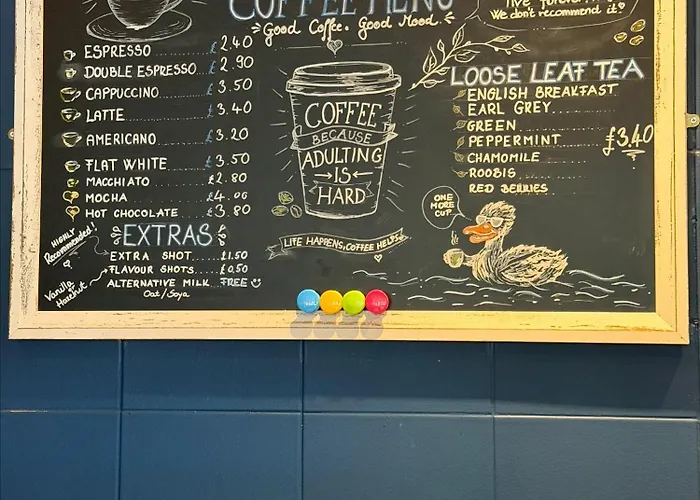 COFFEE MENU
Good Coffee. Good Mood.
live forever.
We don't recommend it!
ESPRESSO £2.40
DOUBLE ESPRESSO £2.90
CAPPUCCINO £3.50
LATTE £3.40
AMERICANO £3.20
FLAT WHITE £3.50
MACCHIATO £2.80
MOCHA £4.00
HOT CHOCOLATE £3.80
HIGHLY
Recommended!
EXTRAS
EXTRA SHOT £1.50
FLAVOUR SHOTS £0.50
ALTERNATIVE MILK FREE
Oat/Soya
Vanilla
Hazelnut
COFFEE
BECAUSE
ADULTING
IS
HARD
LIFE HAPPENS, COFFEE HELPS
LOOSE LEAF TEA
ENGLISH BREAKFAST
EARL GREY
GREEN
PEPPERMINT
CHAMOMILE
ROOBIS
RED BERRIES
£3.40
ONE
MORE
CUP